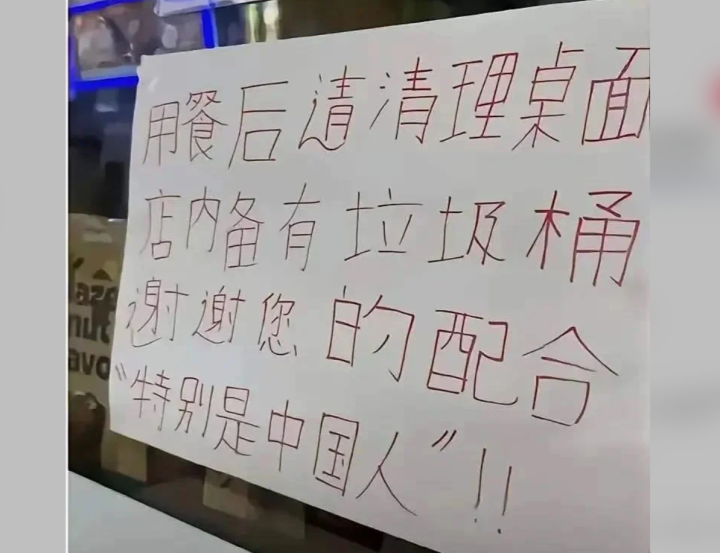 用餐后请清理桌面
店内备有垃圾桶
谢谢您的配合
“特别是中国人”!!
aze
nut
avo